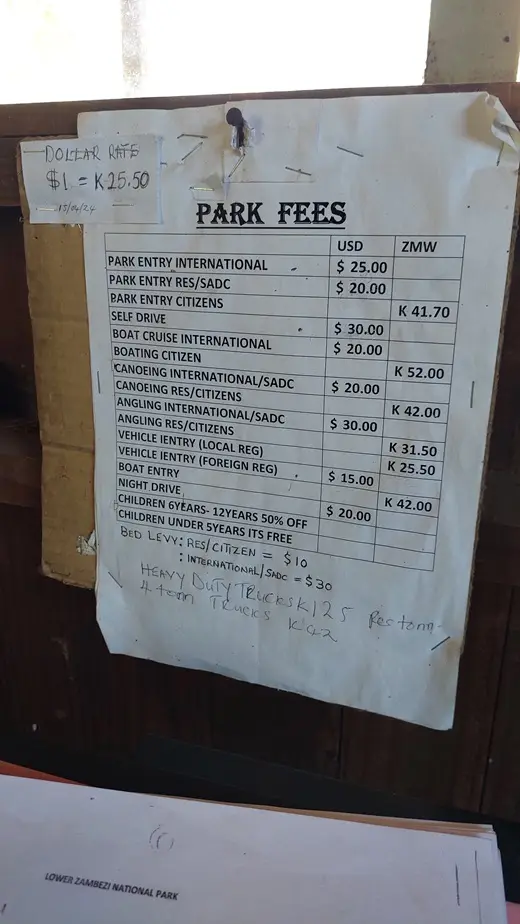 DOLLAR RATE
$1 = K25.50
15/04/24
PARK FEES
USD ZMW
PARK ENTRY INTERNATIONAL $ 25.00
PARK ENTRY RES/SADC $ 20.00
PARK ENTRY CITIZENS K 41.70
SELF DRIVE $ 30.00
BOAT CRUISE INTERNATIONAL $ 20.00
BOATING CITIZEN K 52.00
CANOEING INTERNATIONAL/SADC $ 20.00
CANOEING RES/CITIZENS K 42.00
ANGLING INTERNATIONAL/SADC $ 30.00
ANGLING RES/CITIZENS K 31.50
VEHICLE IENTRY (LOCAL REG) K 25.50
VEHICLE IENTRY (FOREIGN REG) $ 15.00
BOAT ENTRY K 42.00
NIGHT DRIVE $ 20.00
CHILDREN 6YEARS- 12YEARS 50% OFF
CHILDREN UNDER 5YEARS ITS FREE
BED LEVY: RES/CITIZEN = $10
: INTERNATIONAL/SADC = $30
HEAVY DUTY TRUCKS K125
4 tonn TRUCKS K42
LOWER ZAMBEZI NATIONAL PARK